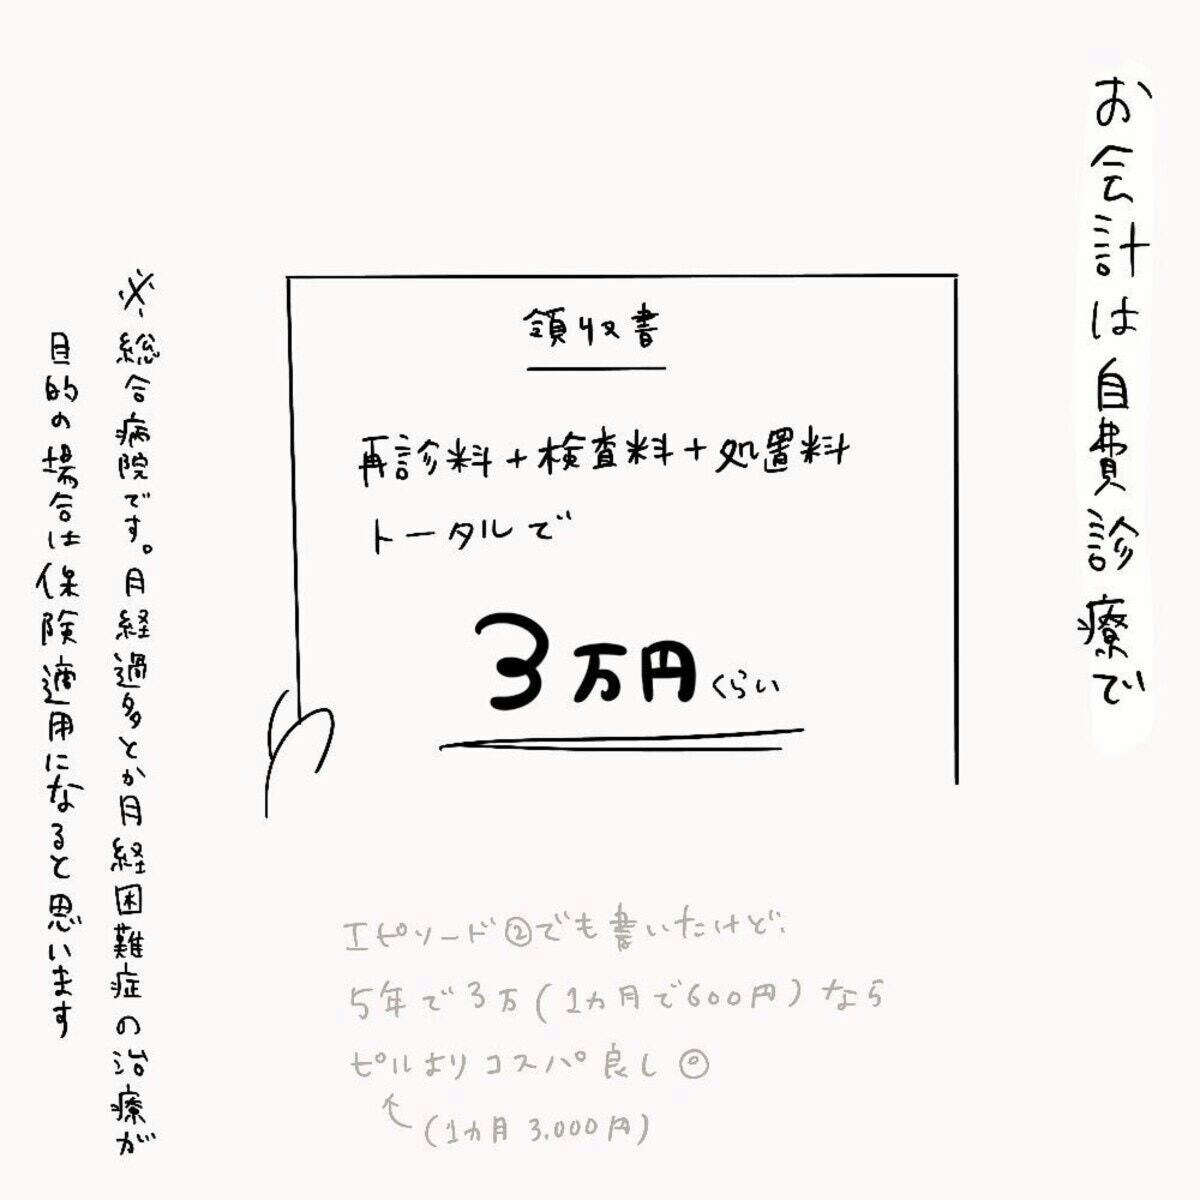 お会計は自費診療で
領収書
再診料+検査料+処置料
トータルで
3万円くらい
※総合病院です。月経過多とか月経困難症の治療が
目的の場合は保険適用になると思います
エピソード②でも書いたけど、
5年で3万(1カ月で600円)なら
ピルよりコスパ良し◎
(1カ月3.000円)